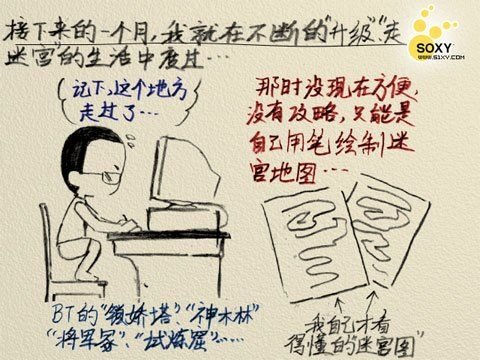 接下来的一个月,我就在不断的"升级""走
迷宫"的生活中度过…
SOXY
www.51XY.com
记下,这个地方
走过了…
那时没现在方便,
没有攻略,只能是
自己用笔绘制迷
宫地图…
BT的"锁妖塔""神木林"
"将军冢""试炼窟"……
我自己才看
得懂的"迷宫图"